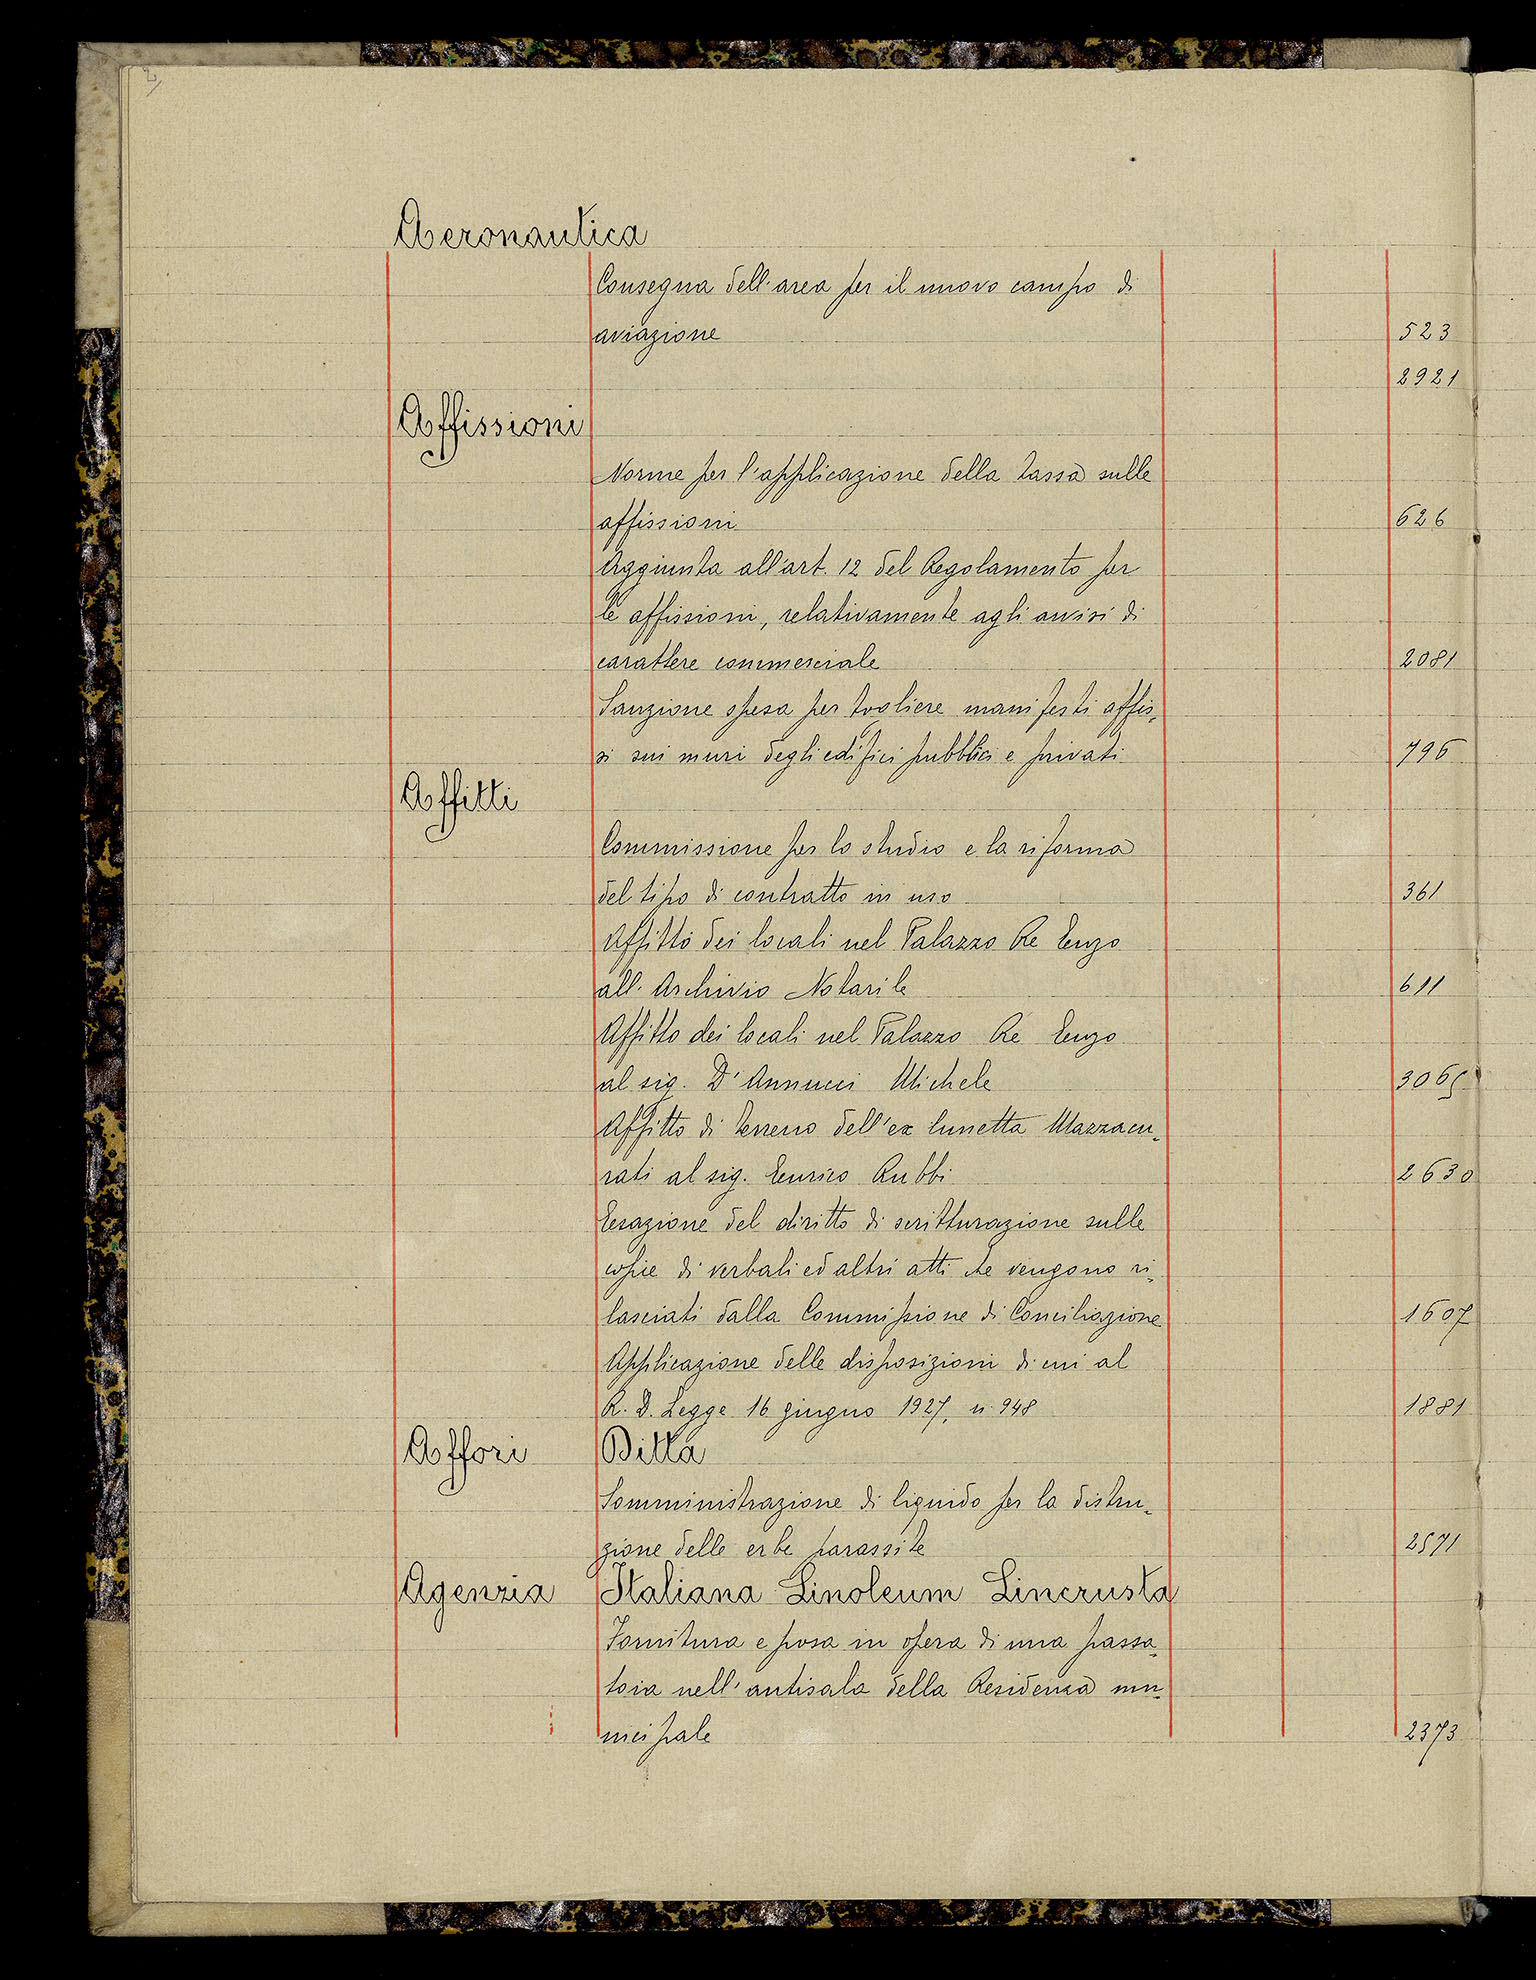 2
Aeronautica
Consegna dell'area per il nuovo campo di
aviazione 523
2921
Affissioni
Norme per l'applicazione della tassa sulle
affissioni 626
Aggiunta all'art. 12 del Regolamento per
le affissioni, relativamente agli avvisi di
carattere commerciale 2081
Sanzione spesa per togliere manifesti affis-
si sui muri degli edifici pubblici e privati 796
Affitti
Commissione per lo studio e la riforma
del tipo di contratto in uso 361
Affitto dei locali nel Palazzo Re Enzo
all'Archivio Notarile 611
Affitto dei locali nel Palazzo Re Enzo
al sig. D'Annucci Michele 3065
Affitto di terreno dell'ex lunetta Mazzacu-
rati al sig. Enrico Rubbi 2630
Esazione del diritto di scritturazione sulle
copie di verbali ed altri atti che vengono ri-
lasciati dalla Commissione di Conciliazione 1607
Applicazione delle disposizioni di cui al
R. D. Legge 16 giugno 1927, n. 948 1881
Affori Ditta
Somministrazione di liquido per la distru-
zione delle erbe parassite 2571
Agenzia Italiana Linoleum Lincrusta
Fornitura e posa in opera di una passa-
toia nell'antisala della Residenza mu-
nicipale 2373